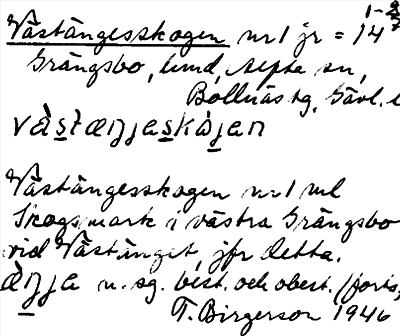 Västängesskogen nr 1 jr = 14
Grängsbo, hmd, Alfta sn,
Bollnäs tg, Gävl. l
västæŋjeskåjen
Västängesskogen nr 1 ml
Skogsmark i västra Grängsbo
vid Västänget, jfr detta.
àŋja n. sg. best. och obest. (forts,
T. Birgerson 1946